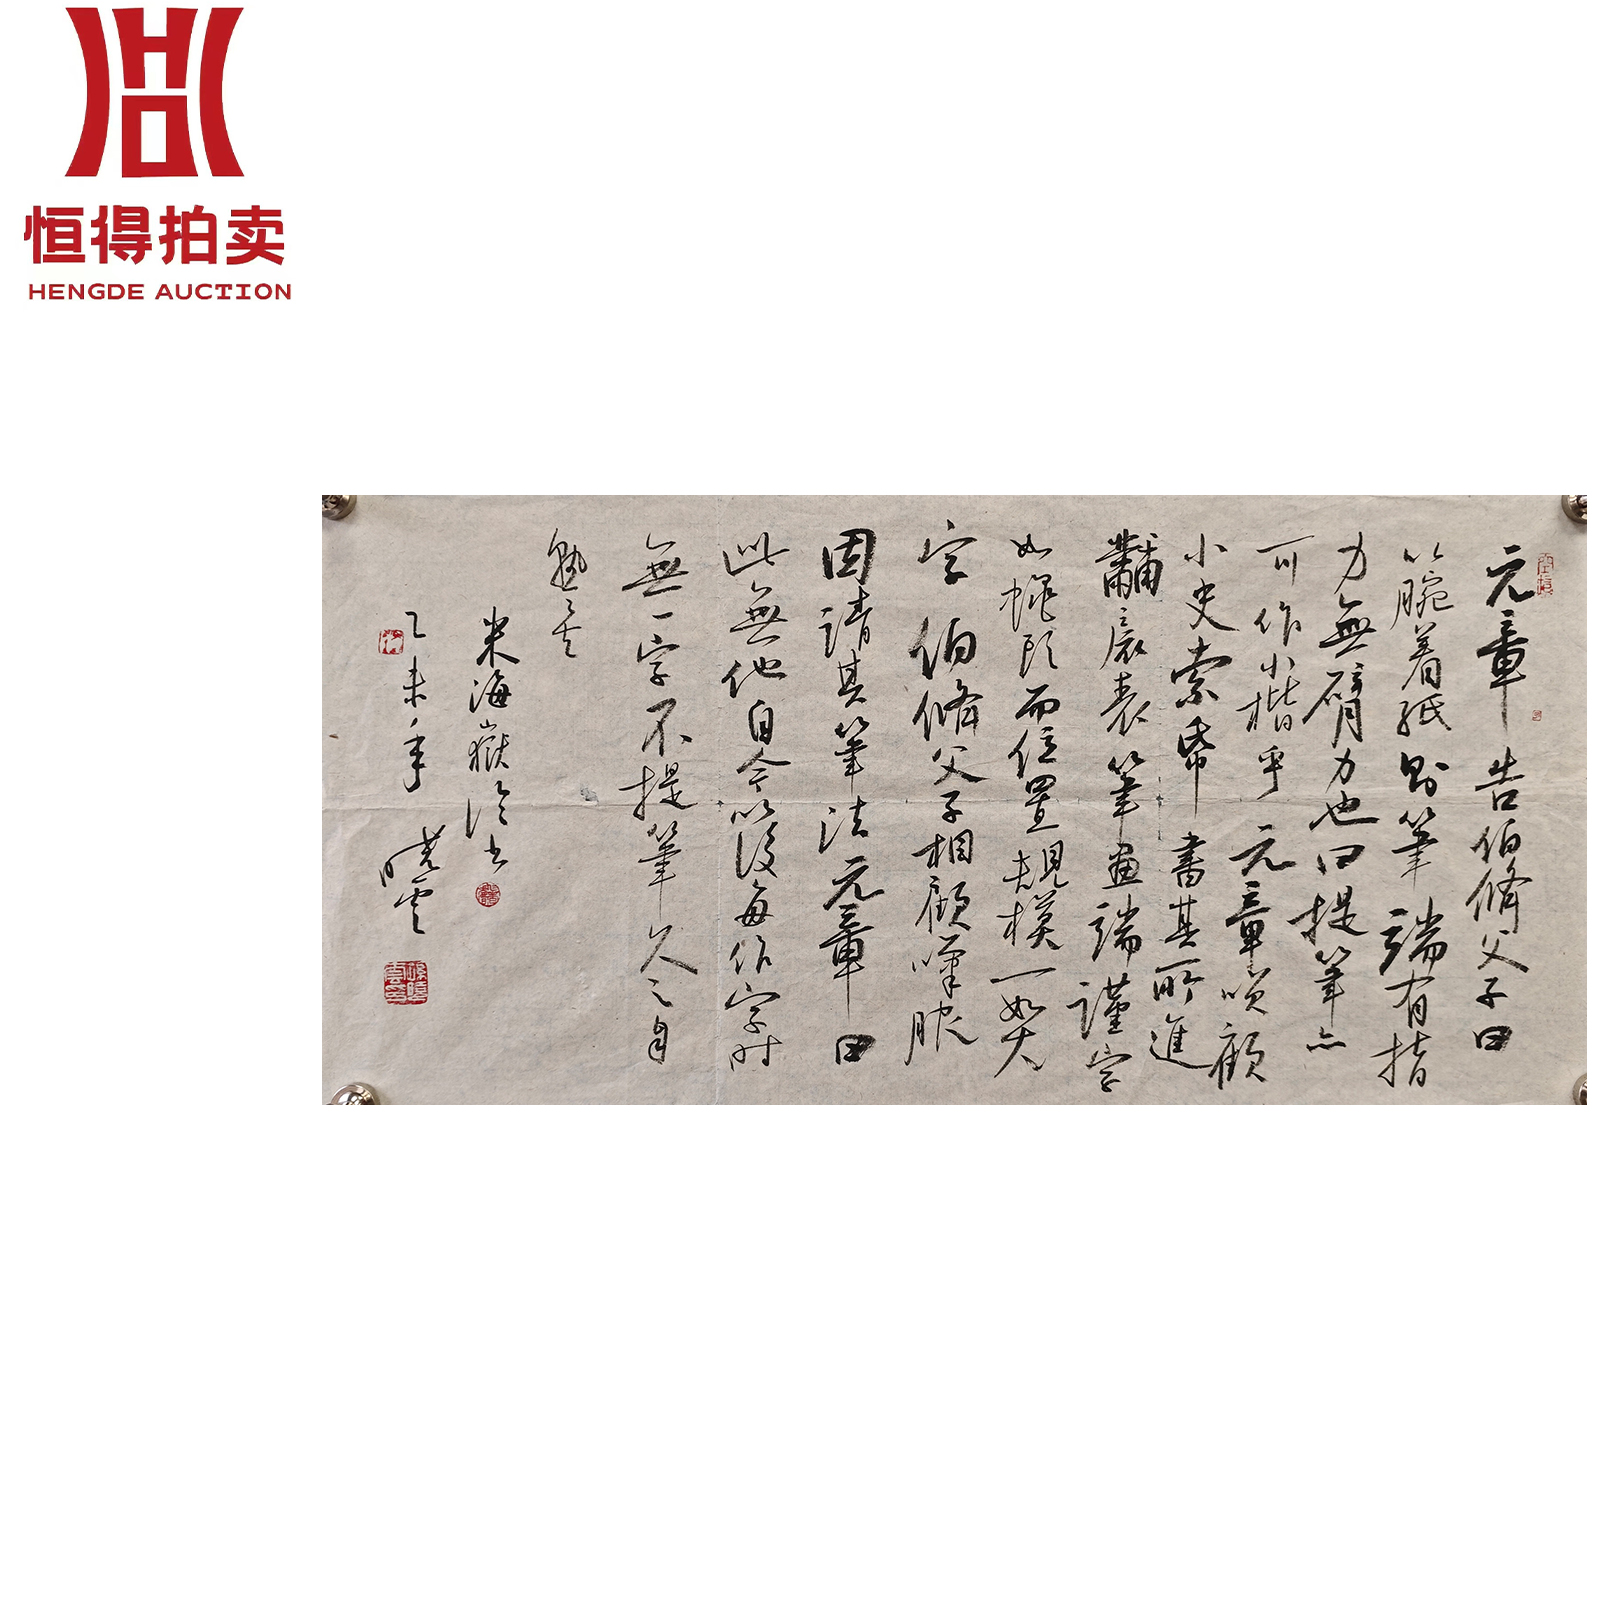 恒得拍卖
HENGDE AUCTION
元章告伯脩父子曰
以腕着纸则筆端有指
力無臂力也曰提筆亦
可作小楷乎元章笑顧
小史索帋書其所進
黼扆表筆畫端謹字
如蠅頭而位置規模一如大
字伯脩父子相顧嘆服
因請其筆法元章曰
此無他自今以後每作字时
無一字不提筆久之自
熟矣
米海嶽論書
乙未年曉雲